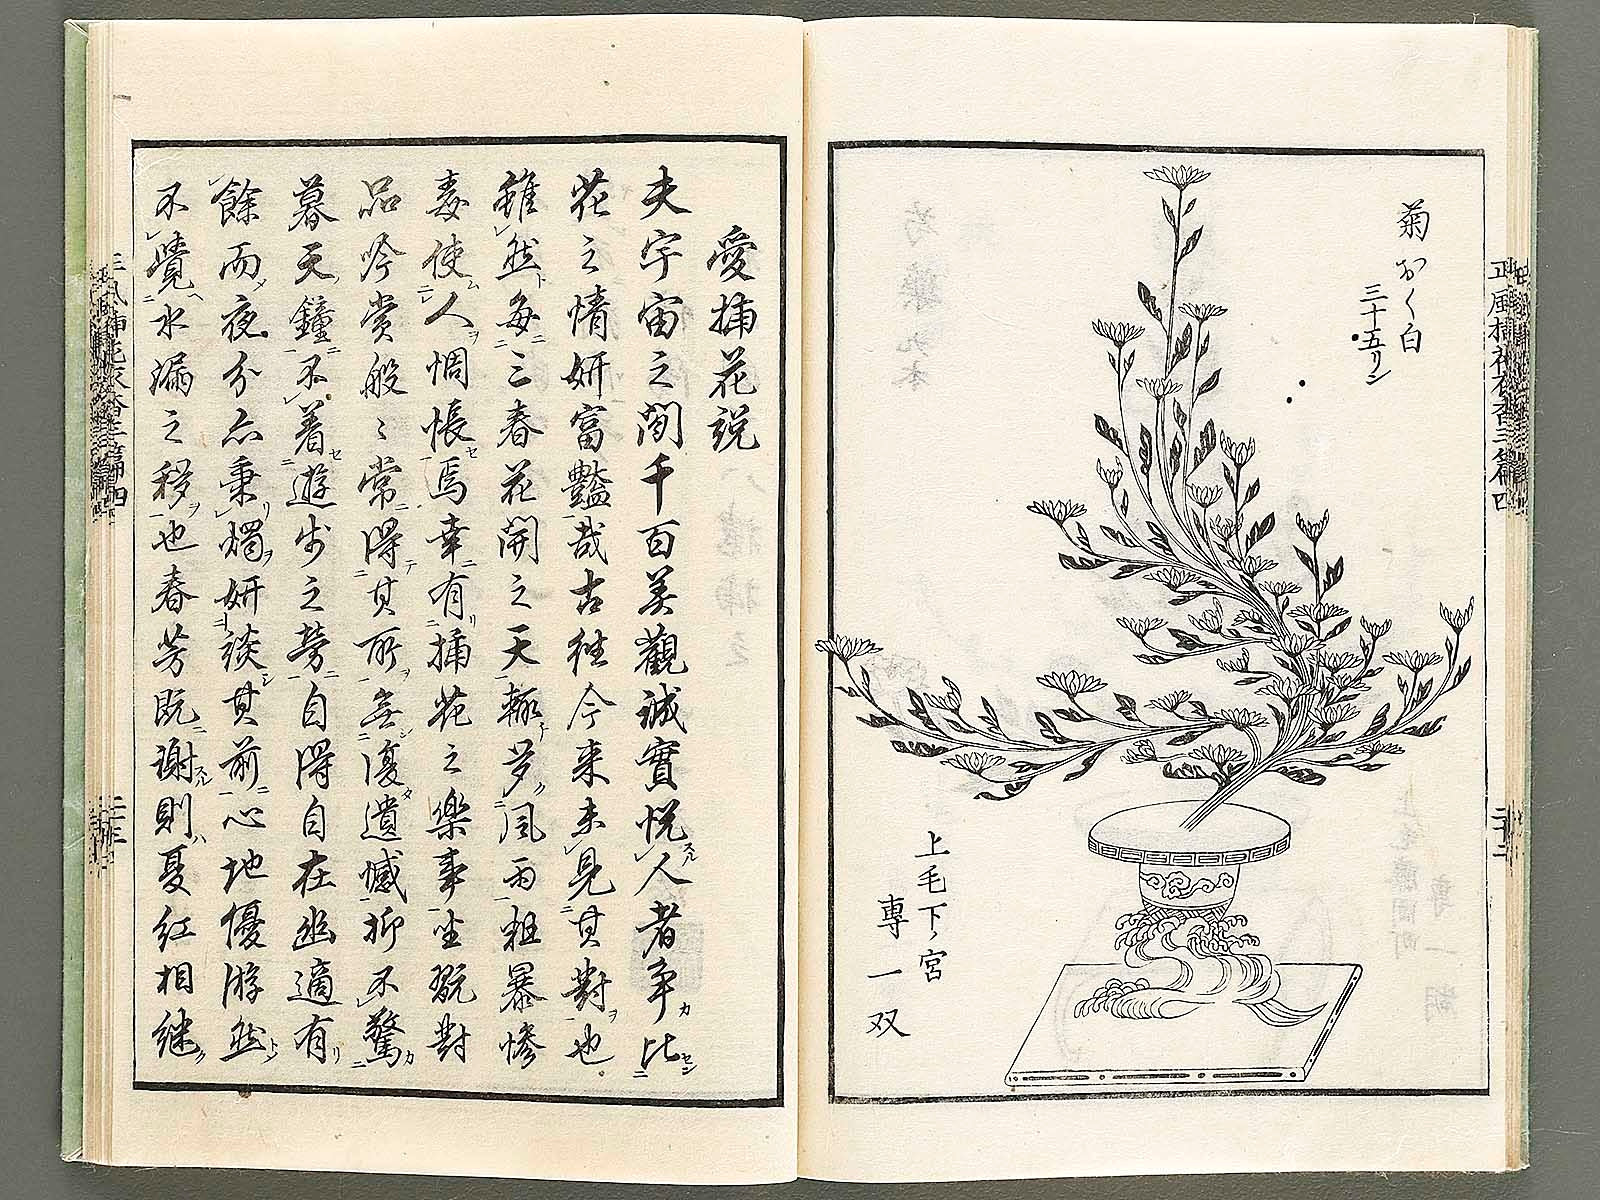 菊
おく白
三十五リン
上毛下ノ宮
専一双
愛插花説
夫宇宙之間千百美觀誠實悦人者争比
花之情妍富豔哉古往今来未見其對也
雖然毎三春花開之天輙夢風雨粗暴惨
毒使人惆悵焉幸有插花之樂事坐翫對
品吟賞般〻常得其所無復遺憾抑不驚
暮天鐘不着遊歩之勞自得自在幽適有
餘而夜分点秉燭妍談其前心地優游然
不覺水漏之移也春芳既謝則夏紅相継